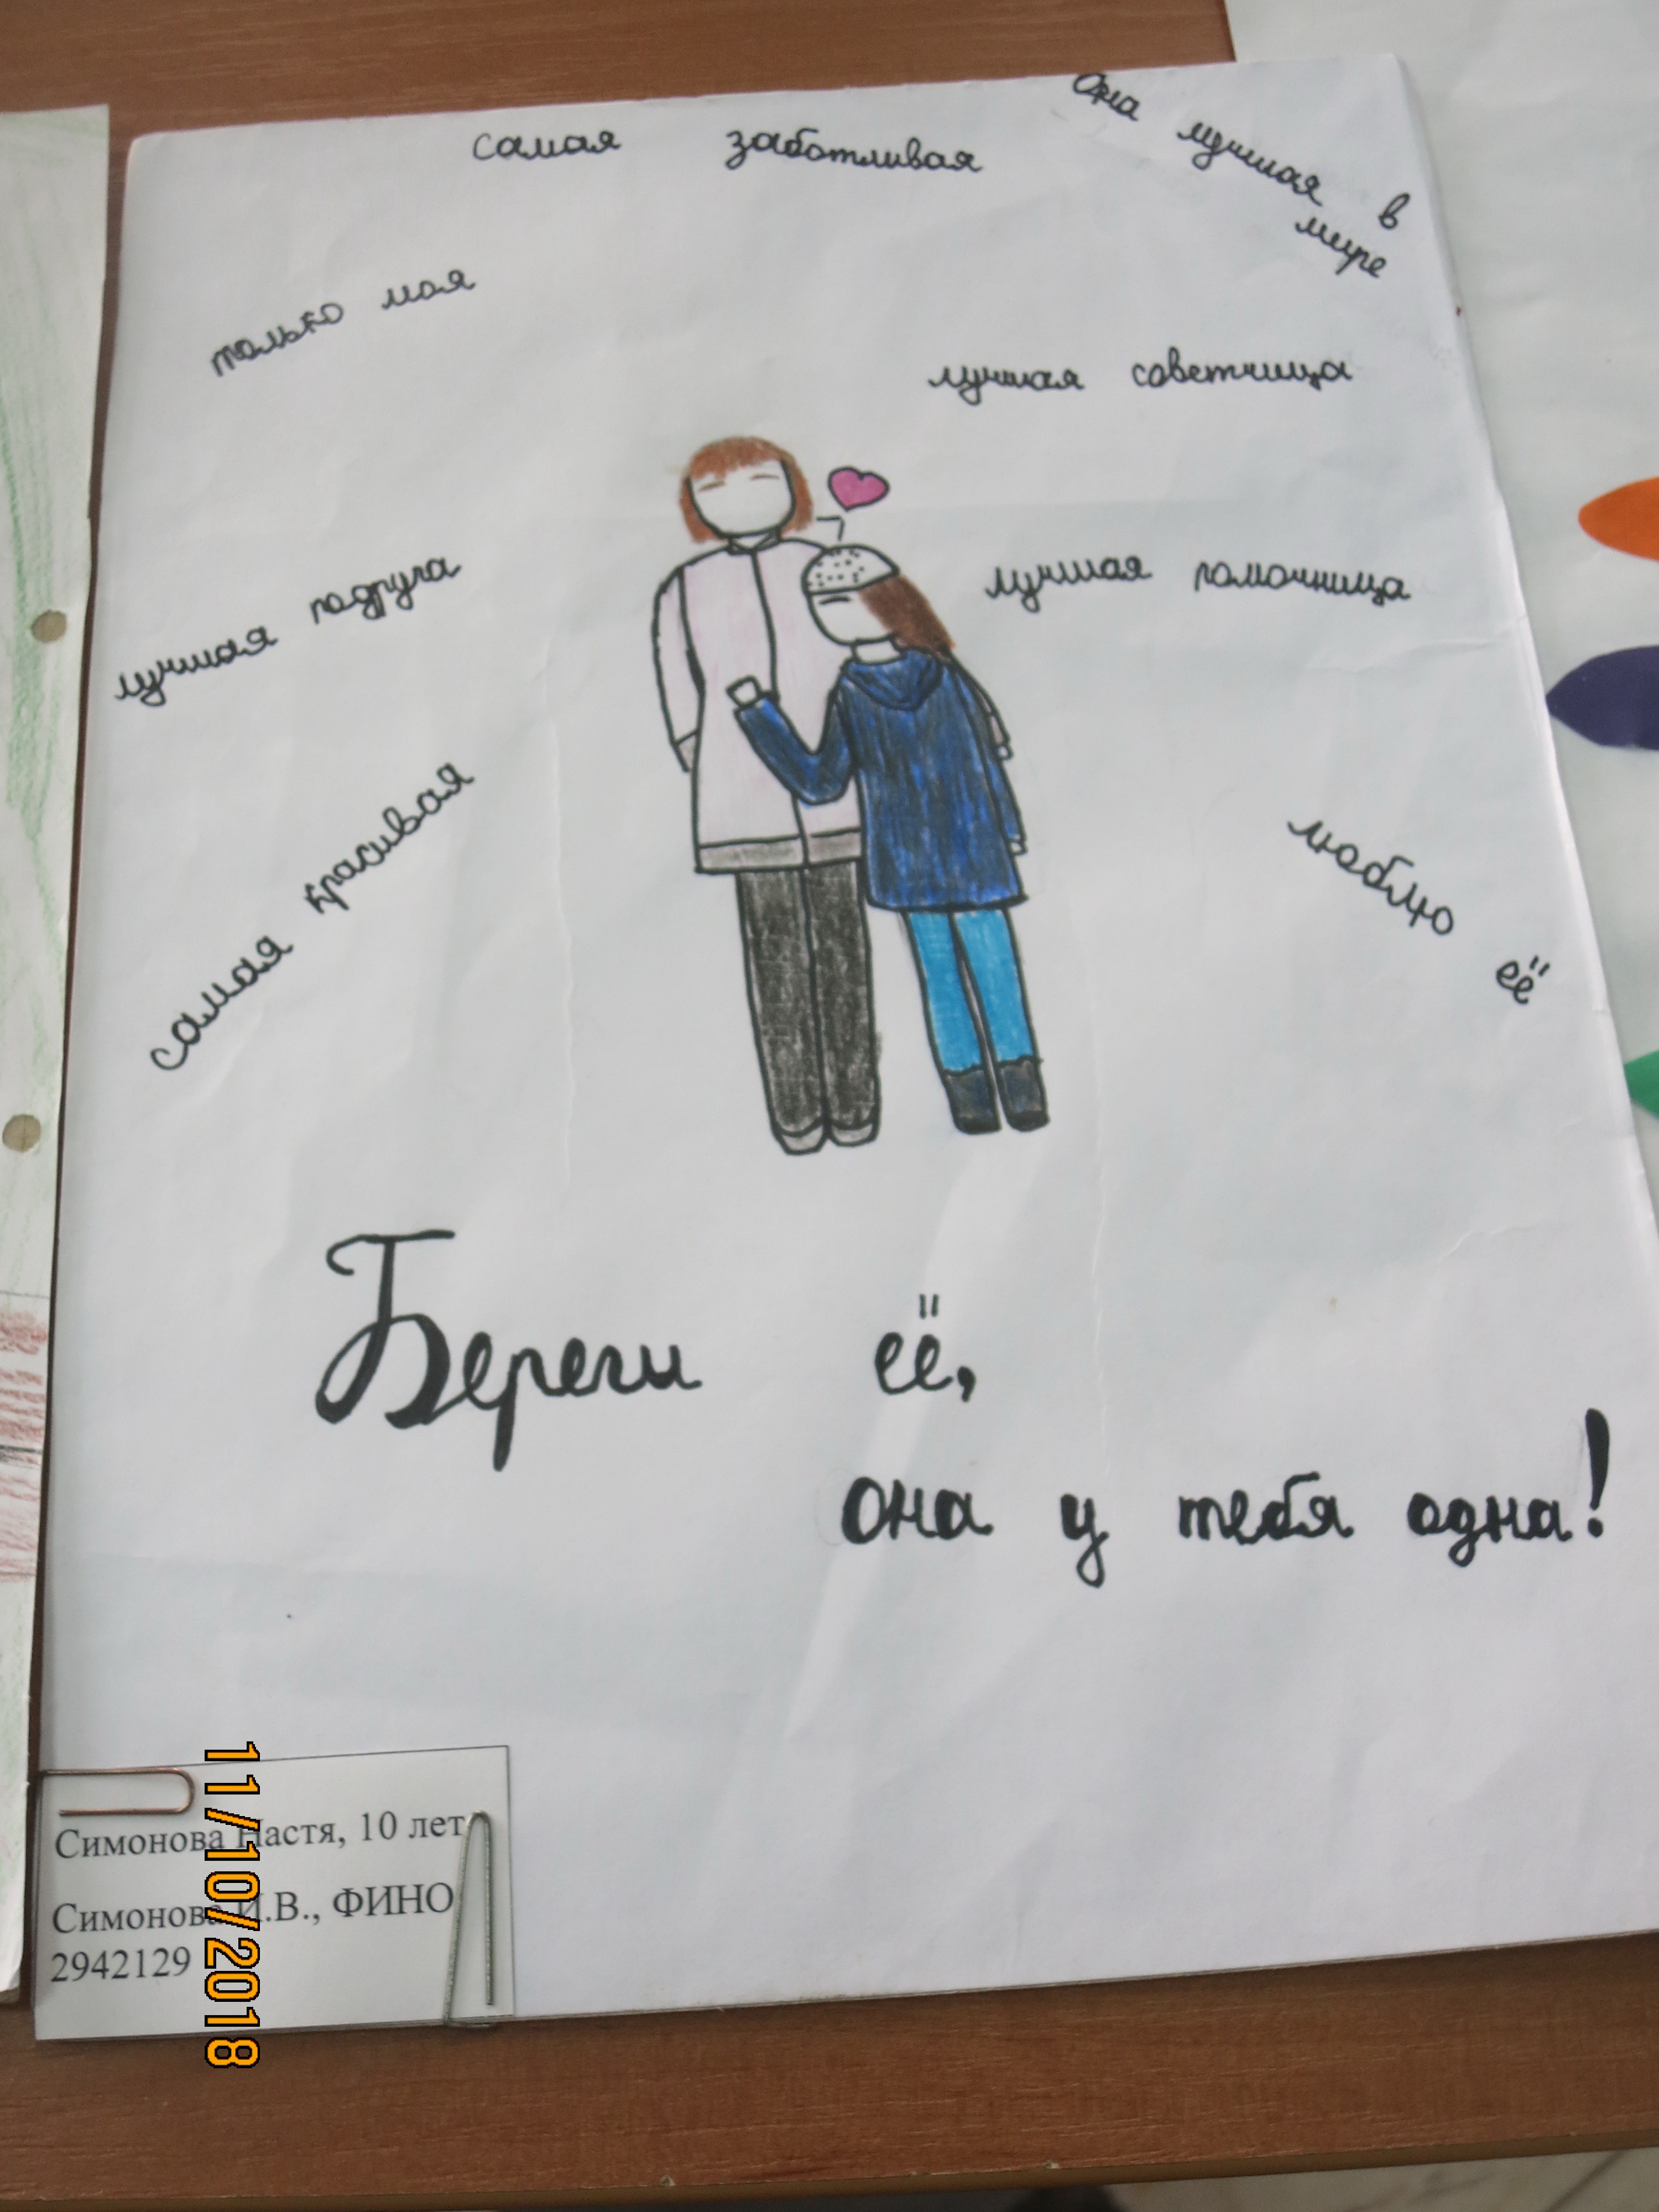 самая заботливая
Она лучшая в
мире
только моя
лучшая советчица
лучшая подруга
лучшая помочница
самая красивая
люблю её
Береги её,
она у тебя одна!
Симонова Настя, 10 лет
Симонова И.В., ФИНО
2942129
11/10/2018